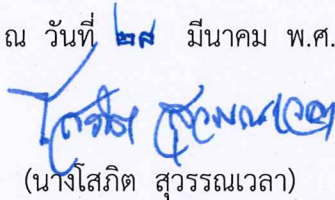 ณ วันที่ ๒๘ มีนาคม พ.ศ.
โสภิต สุวรรณเวลา
(นางโสภิต สุวรรณเวลา)